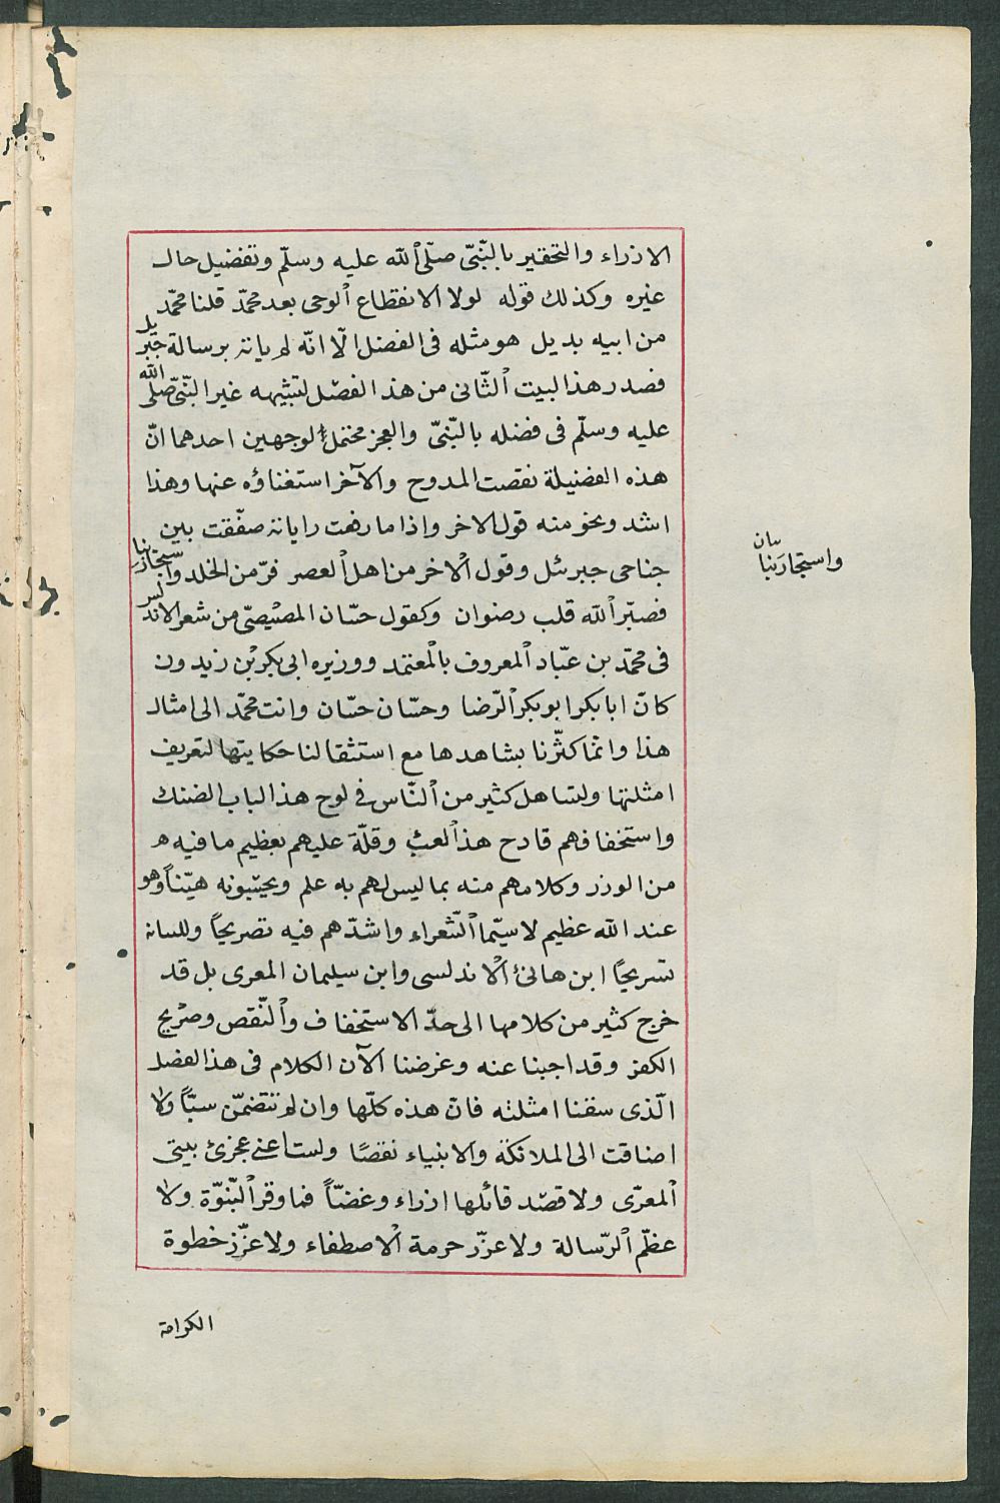 الازراء والتحقير بالنّبىّ صلّى ٱلله عليه وسلّم وتفضيل حال
غيره وكذلك قوله لولا الانقطاع ٱلوحى بعد محمّد قلنا محمّد
من ابيه بديل هو مثله فى الفضل الّا انّه لم ياته برسالة جبريل
فصدر هذا لبيت ٱلثّانى من هذ الفصل لتشبيهه غير النّبىّ صلى الله
عليه وسلّم فى فضله بالنّبىّ والعجز محتمل لوجهين احدهما انّ
هذه الفضيلة نقصت المدوح والآخر استغناؤه عنها وهذا
اشد ونحو منه قول الاخر واذا ما رفعت راياته صفّقت بين
جناحى جبرئل وقول ٱلاخر من اهل ٱلعصر فرّ من الخلد واستجار بنا
فصبّر ٱلله قلب رضوان وكقول حسّان المصّيصّى من شعر الاندلس
فى محمّد بن عبّاد ٱلمعروف بالمعتمد ووزيره ابى بكر بْن زيدون
كانّ ابا بكر ابو بكر ٱلرّضا وحسّان حسّان وانت محمّد الى امثال
هذا وانّما كثّرنا بشاهدها مع استثقالنا حكايتها لتعريف
امثلتها ولتساهل كثير من ٱلنّاس فى لوج هذ الباب الضنك
واستخفافهم قادح هذ ٱلعبْ وقلّة عليهم بعظيم ما فيه
من الوزر وكلامهم منه بما ليس لهم به علم ويحسّبونه هيّناً وهو
عند الله عظيم لا سيّما ٱلشّعراء واشدّهم فيه تصريحًا وللسانه
تسريحًا ابن هانئ ٱلاندلسى وابن سليمان المعرى بل قد
خرج كثير من كلامها الى حدّ الاستخفاف وٱلنّقص وصريح
الكفر وقد اجبنا عنه وغرضنا الآن الكلام فى هذ الفصل
الّذى سقنا امثلته فانّ هذه كلّها وان لم تتضمّن سبّاً ولا
اضافت الى الملائكة والانبياء نقصًا ولست اعنى عجزى بيتى
ٱلمعرّى ولا قصّد قائلها ازراء وغضّاً فما وقر ٱلنّبوّة ولا
عظّم ٱلرّسالة ولا عزّر حرمة ٱلاصطفاء ولا عزّز خطوة
الكرامة
بيان
واستجارَبنا